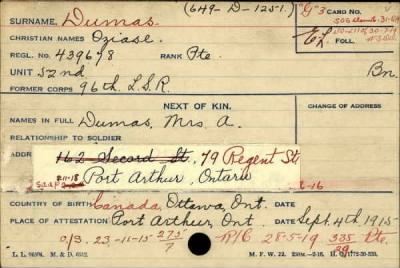 (649-D-1251.) "G"3 CARD NO.
SURNAME, Dumas.
CHRISTIAN NAMES Oziase. FOLL.
REGL. NO. 439678 RANK Pte
UNIT 52nd Bn.
FORMER CORPS 96th L.S.R.
NEXT OF KIN. CHANGE OF ADDRESS
NAMES IN FULL Dumas, Mrs. A.
RELATIONSHIP TO SOLDIER
ADDR 162 Secord St, 79 Regent St.
Port Arthur, Ontario
COUNTRY OF BIRTH Canada, Ottawa, Ont. DATE
PLACE OF ATTESTATION Port Arthur, Ont. DATE Sept. 4th, 1915
O/S. 23-11-15 275/7 R/C 28-5-19 335/29 Pte.
L. L. M. & D. M. F. W. 22.